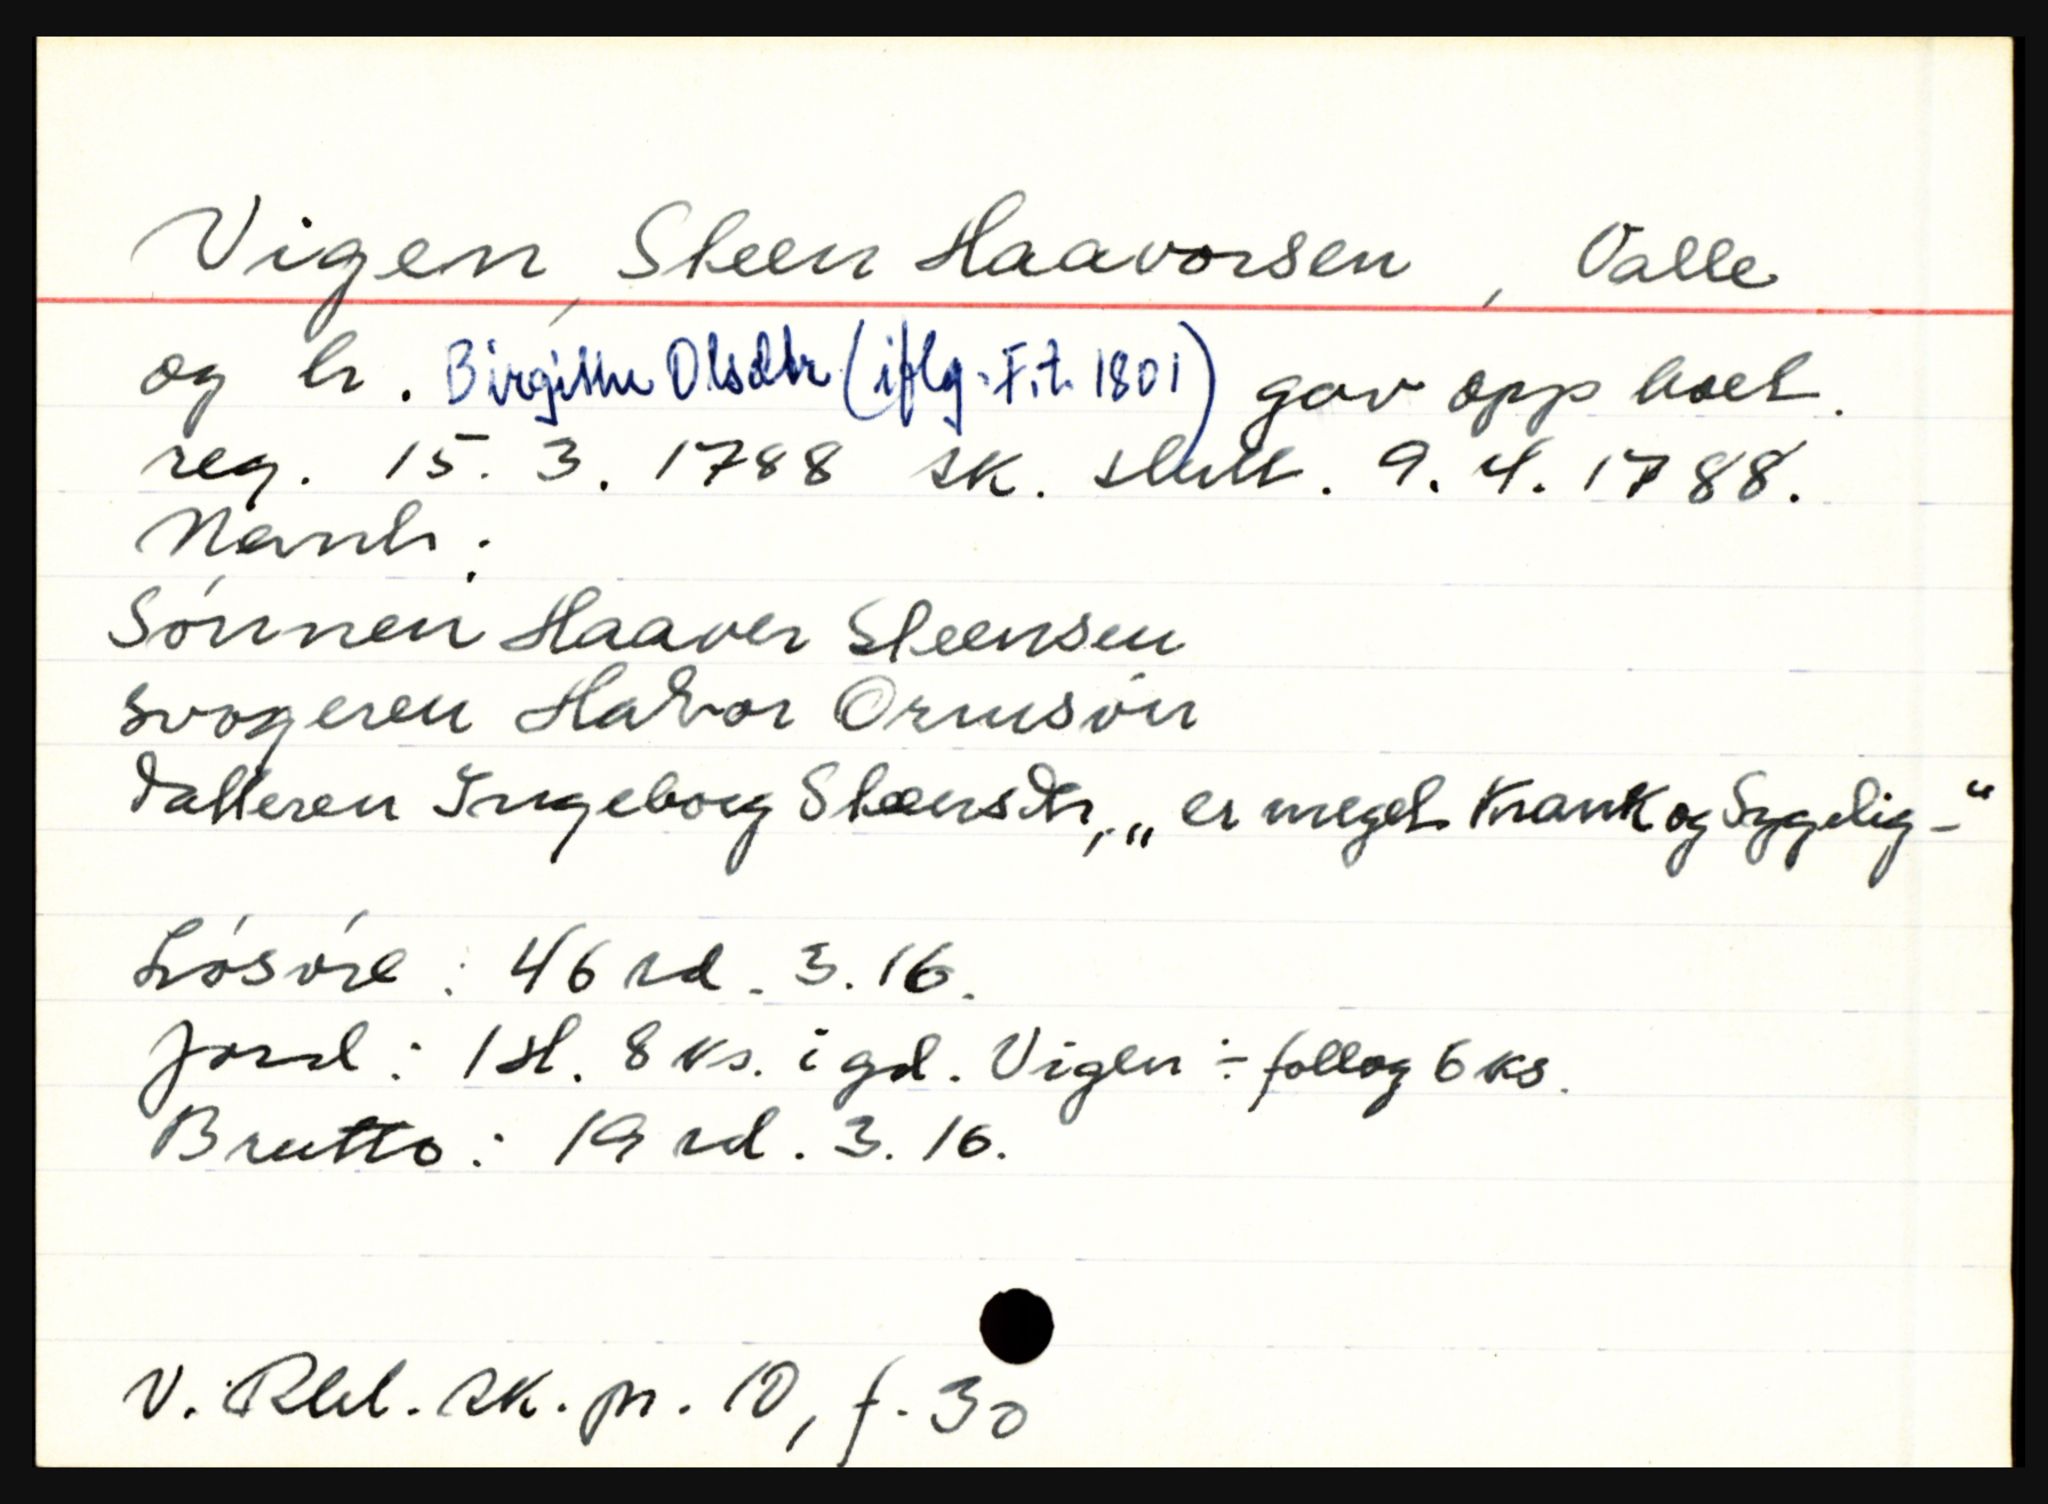 Vigen, Steen Haavorsen, Valle
og h. Birgitte Olsdtr (iflg. F.t. 1801) gav opp boet.
reg. 15.3.1788 sk. slutt. 9.4.1788.
Nevnt:
Sónnen Haaver Steensen
svogeren Halvor Ormsón
datteren Ingeborg Steensdtr, „er meget Krank og Sygelig-“
Lósóre: 46 rd. 3.16.
Jord: 1 st. 8 ks. i gd. Vigen ÷ follog 6 ks.
Brutto: 19 rd. 3.16.
V. Rbd. sk. pr. 10, f. 30